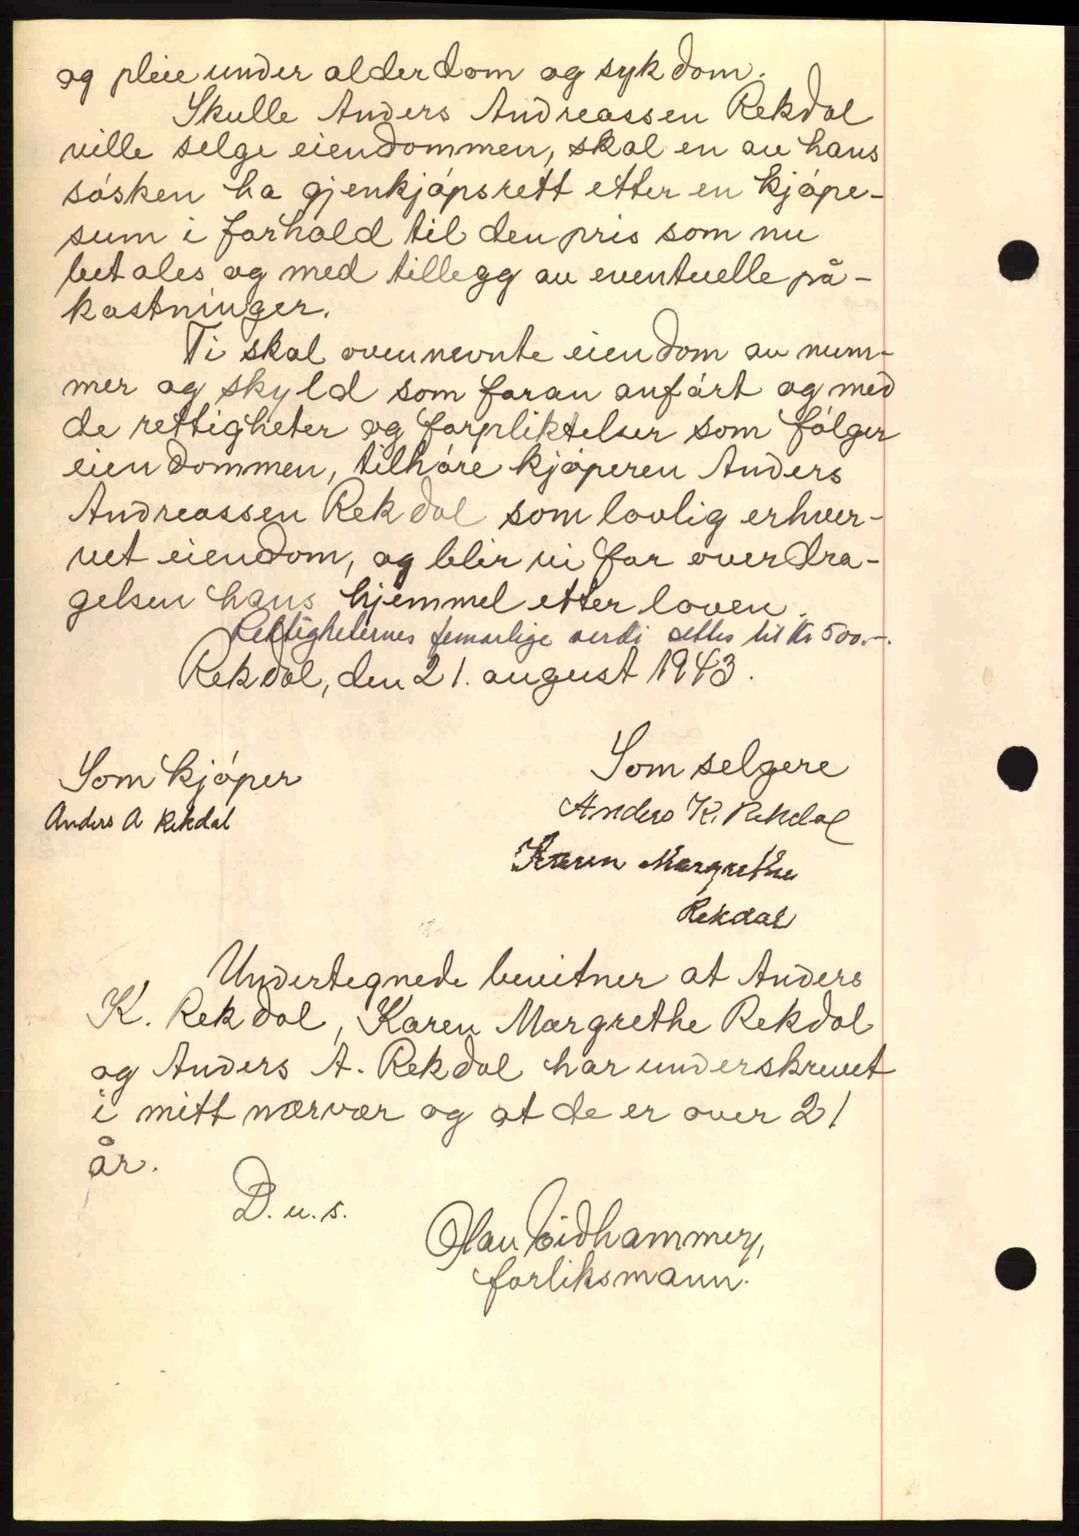 og pleie under alderdom og sykdom.
Skulle Anders Andreassen Rekdal
ville selge eiendommen, skal en av hans
søsken ha gjenkjøpsrett etter en kjøpe-
sum i forhold til den pris som nu
betales og med tillegg av eventuelle på-
kostninger.
Ti skal ovennevnte eiendom av num-
mer og skyld som foran anført og med
de rettigheter og forpliktelser som følger
eiendommen, tilhøre kjøperen Anders
Andreassen Rekdal som lovlig erhver-
vet eiendom, og blir vi for overdra-
gelsen hans hjemmel etter loven.
Rettigheternes femårlige verdi settes til kr 500.-.
Rekdal, den 21. august 1943.
Som kjøper
Anders A Rekdal
Som selgere
Anders K. Rekdal
Karen Margrethe
Rekdal
Undertegnede bevitner at Anders
K. Rekdal, Karen Margrethe Rekdal
og Anders A. Rekdal har underskrevet
i mitt nærvær og at de er over 21
år.
D. u. s.
Olav Eidhammer,
forliksmann.